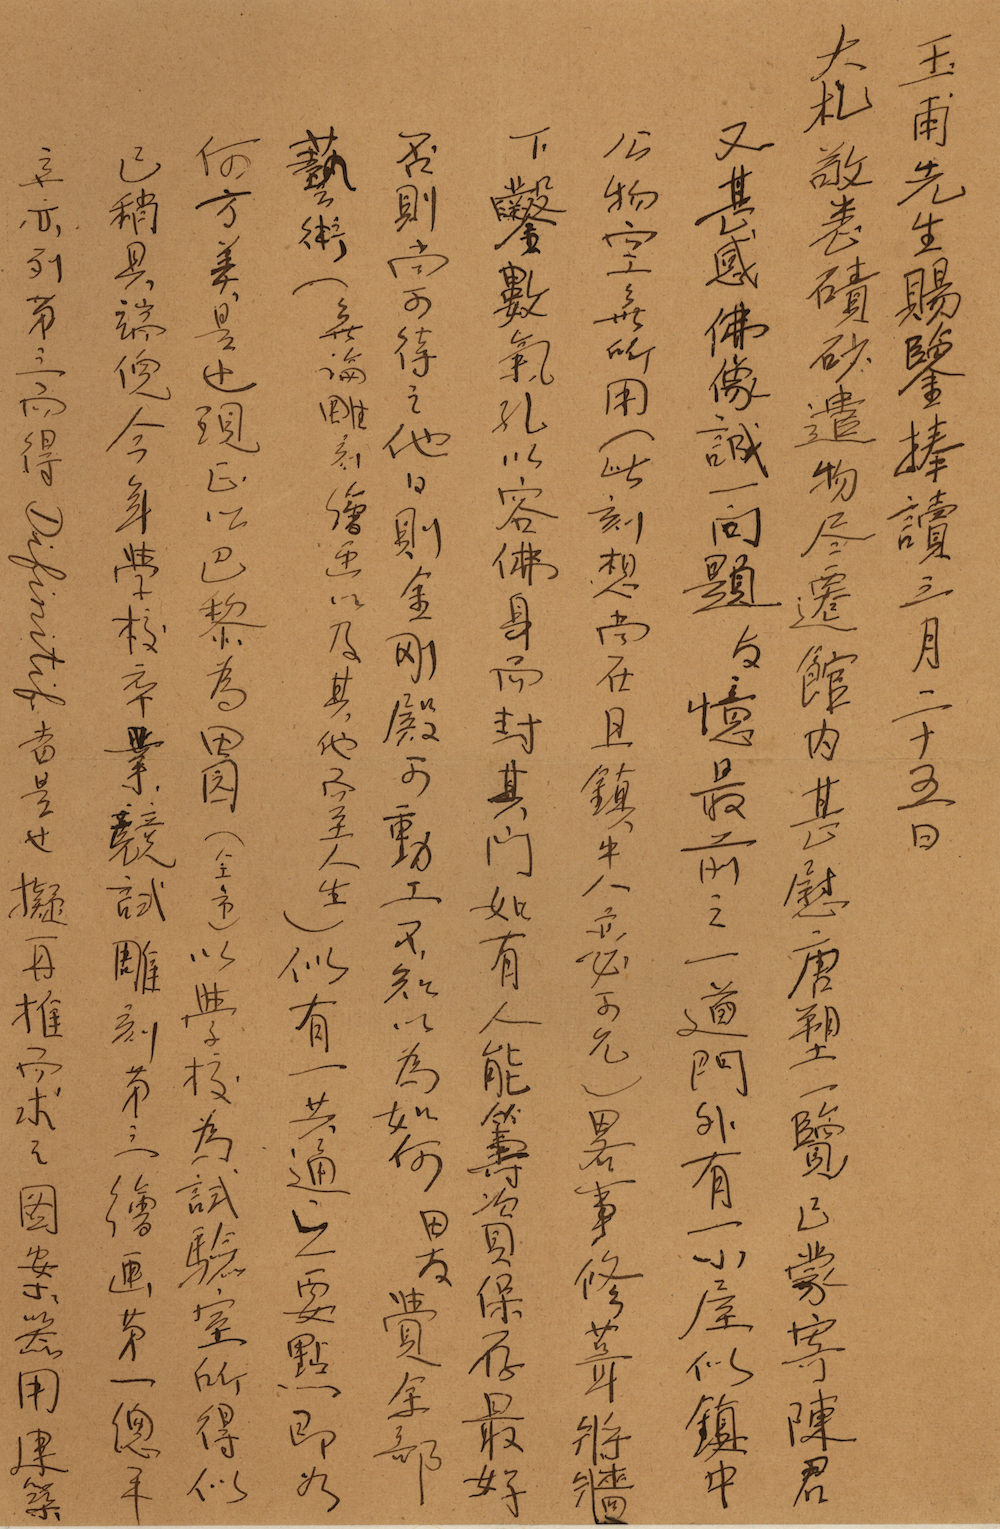 玉甫先生賜鑒捧讀三月二十五日
大札敬悉磧砂遺物尽遷館内甚慰唐塑一覽已蒙寄陳君
又甚感佛像誠一問題 友憶最前之一道門外有一小屋似鎮中
公物空無所用（此刻想尚在且鎮中人亦必可允）畧事修葺將牆
下鑿數氣孔以容佛身而封其門如有人能籌資保存最好
否則尚可待之他日則金剛殿可動工不知以為如何 男友覺全部
藝術（無論雕刻繪畫以及其他乃至人生）似有一共通之要點即為
何方美是也現正以巴黎為田園（全市）以學校為試驗室所得似
已稍具端倪今年學校卒業競試雕刻第三繪画第一總平
立亦列第三而得Difinitif者是也擬再推而求之图案器用建築